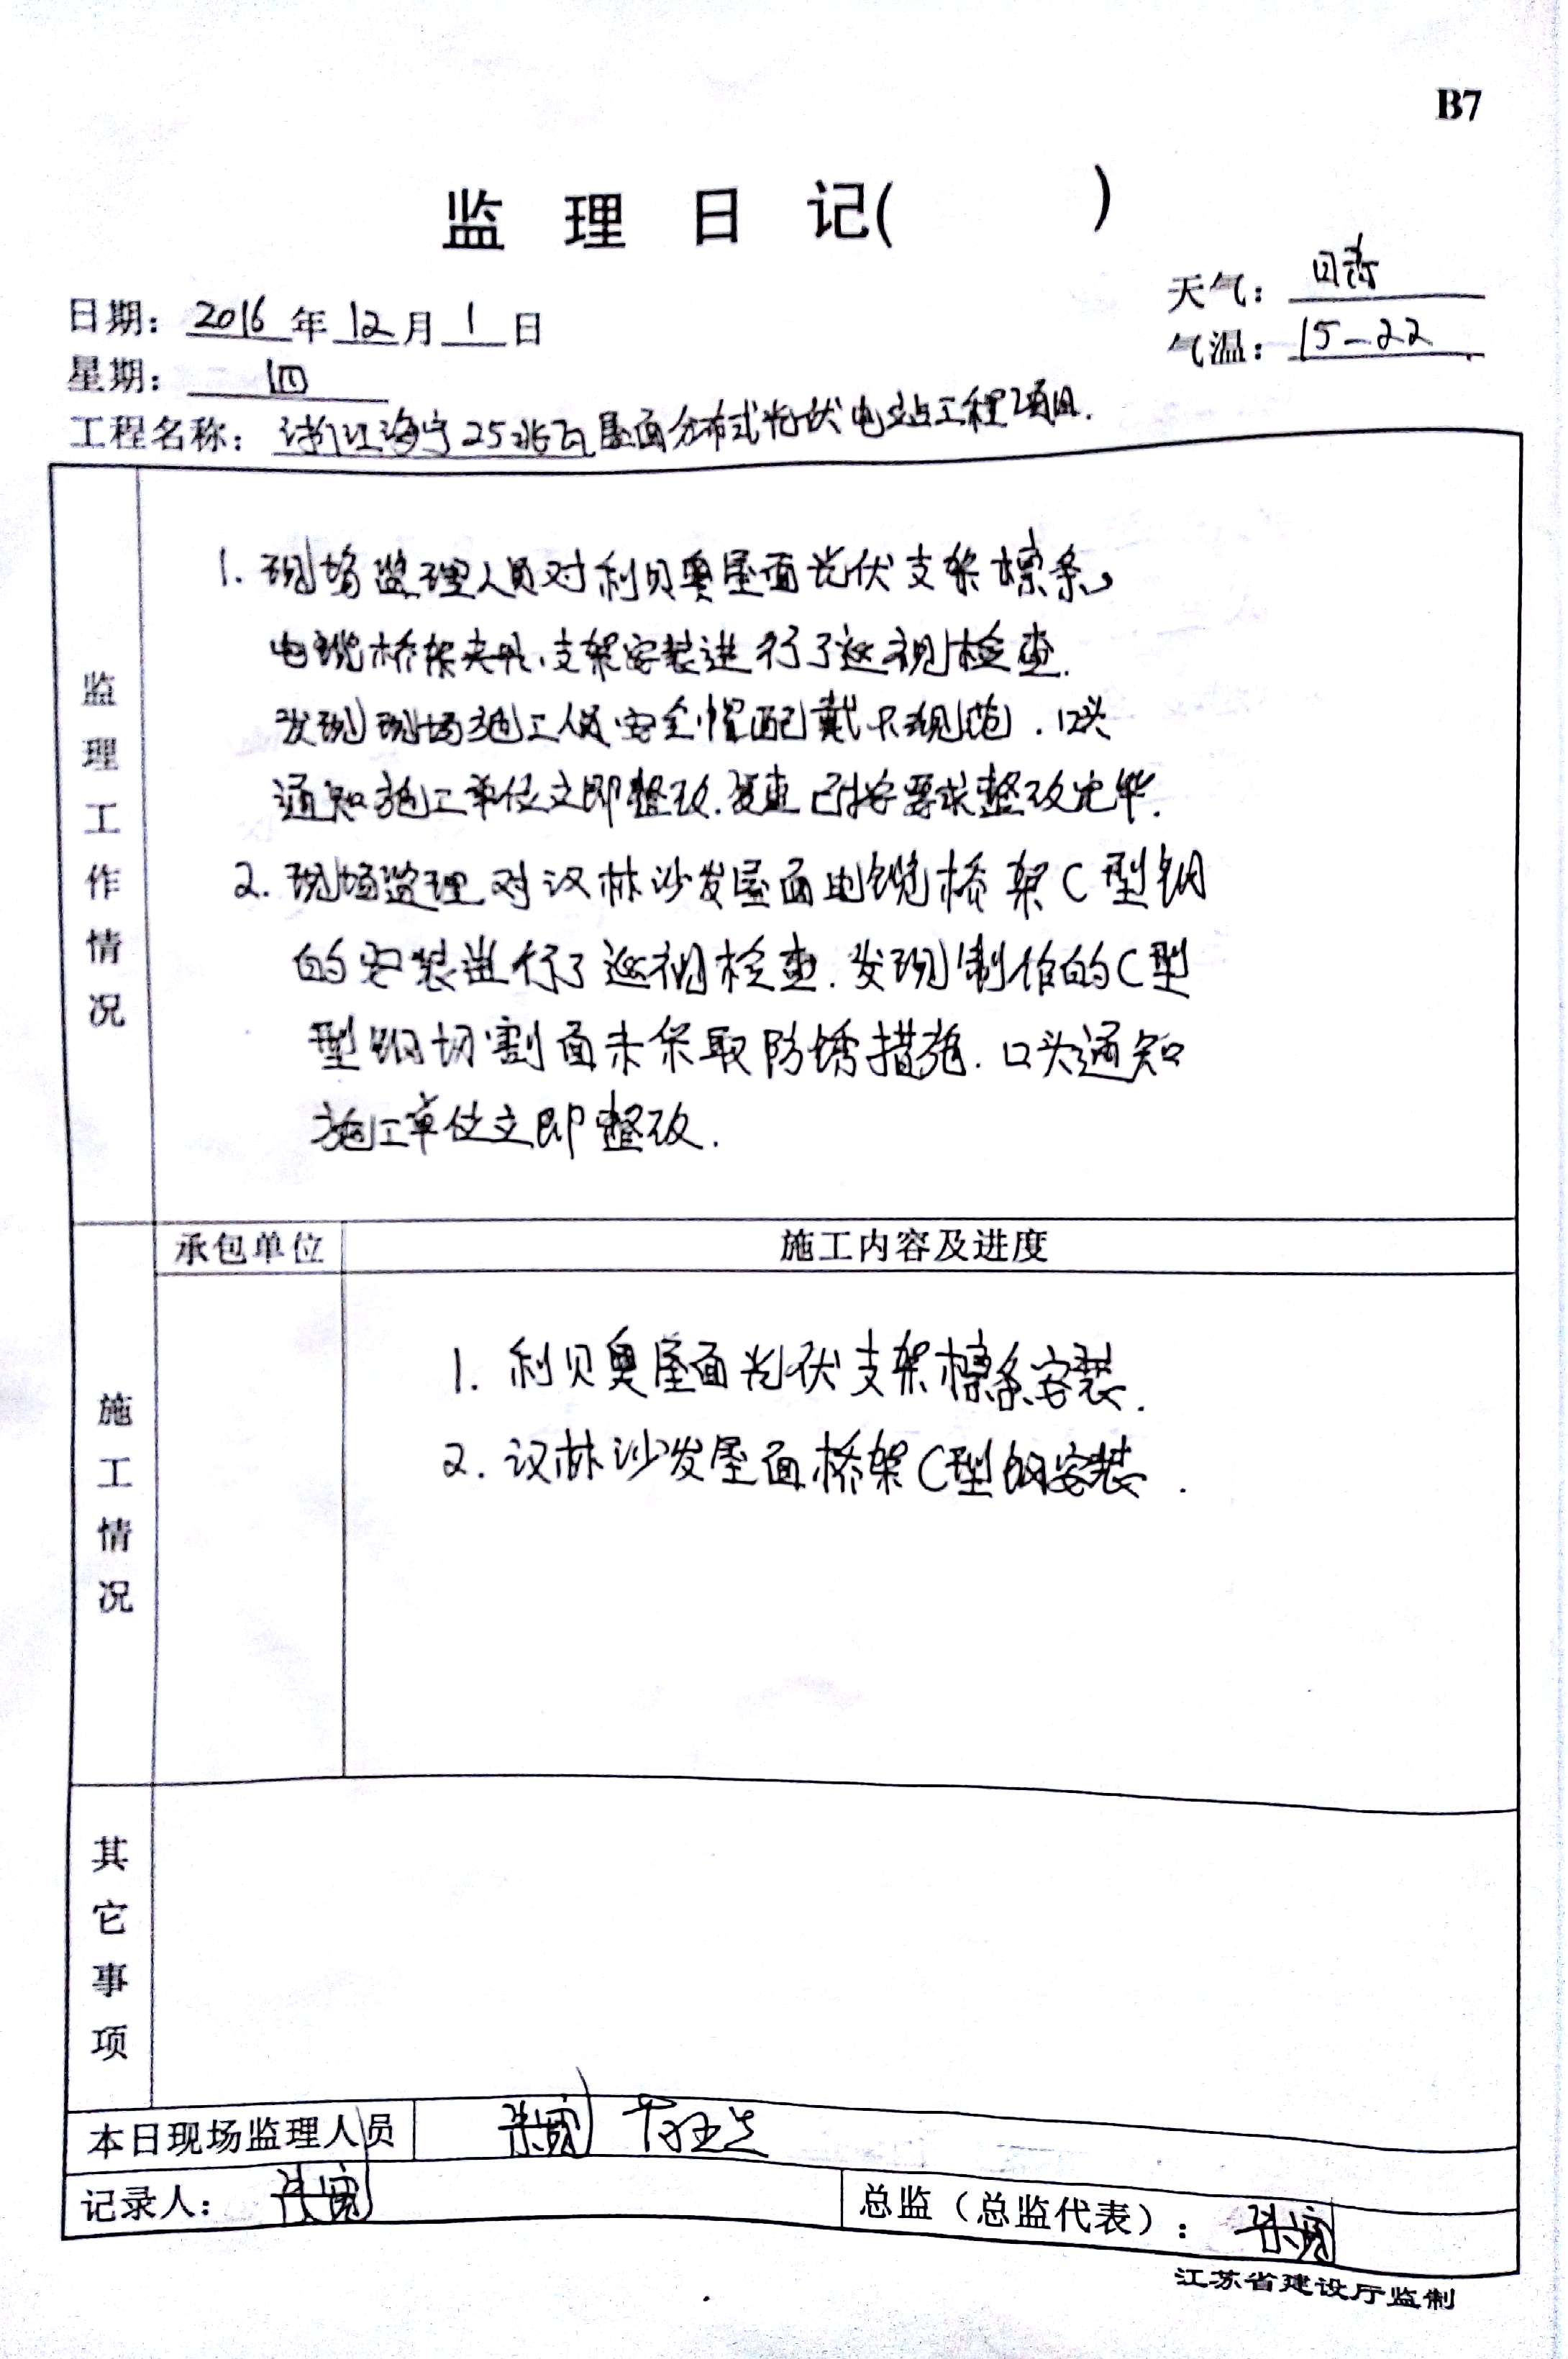 B7
监理日记( )
日期: 2016年12月1日
天气: 晴
星期: 四
气温: 15-22
工程名称: 浙江海宁25兆瓦屋面分布式光伏电站工程项目.
监理工作情况
1. 现场监理人员对利贝奥屋面光伏支架檩条,
电缆桥架夹具、支架安装进行了巡视检查.
发现现场施工人员安全帽配戴不规范. 口头
通知施工单位立即整改. 复查已按要求整改完毕.
2. 现场监理对汉林沙发屋面电缆桥架C型钢
的安装进行了巡视检查. 发现制作的C型
型钢切割面未采取防锈措施. 口头通知
施工单位立即整改.
承包单位 施工内容及进度
施工情况
1. 利贝奥屋面光伏支架檩条安装.
2. 汉林沙发屋面桥架C型钢安装.
其它事项
本日现场监理人员
记录人:
总监（总监代表）:
江苏省建设厅监制